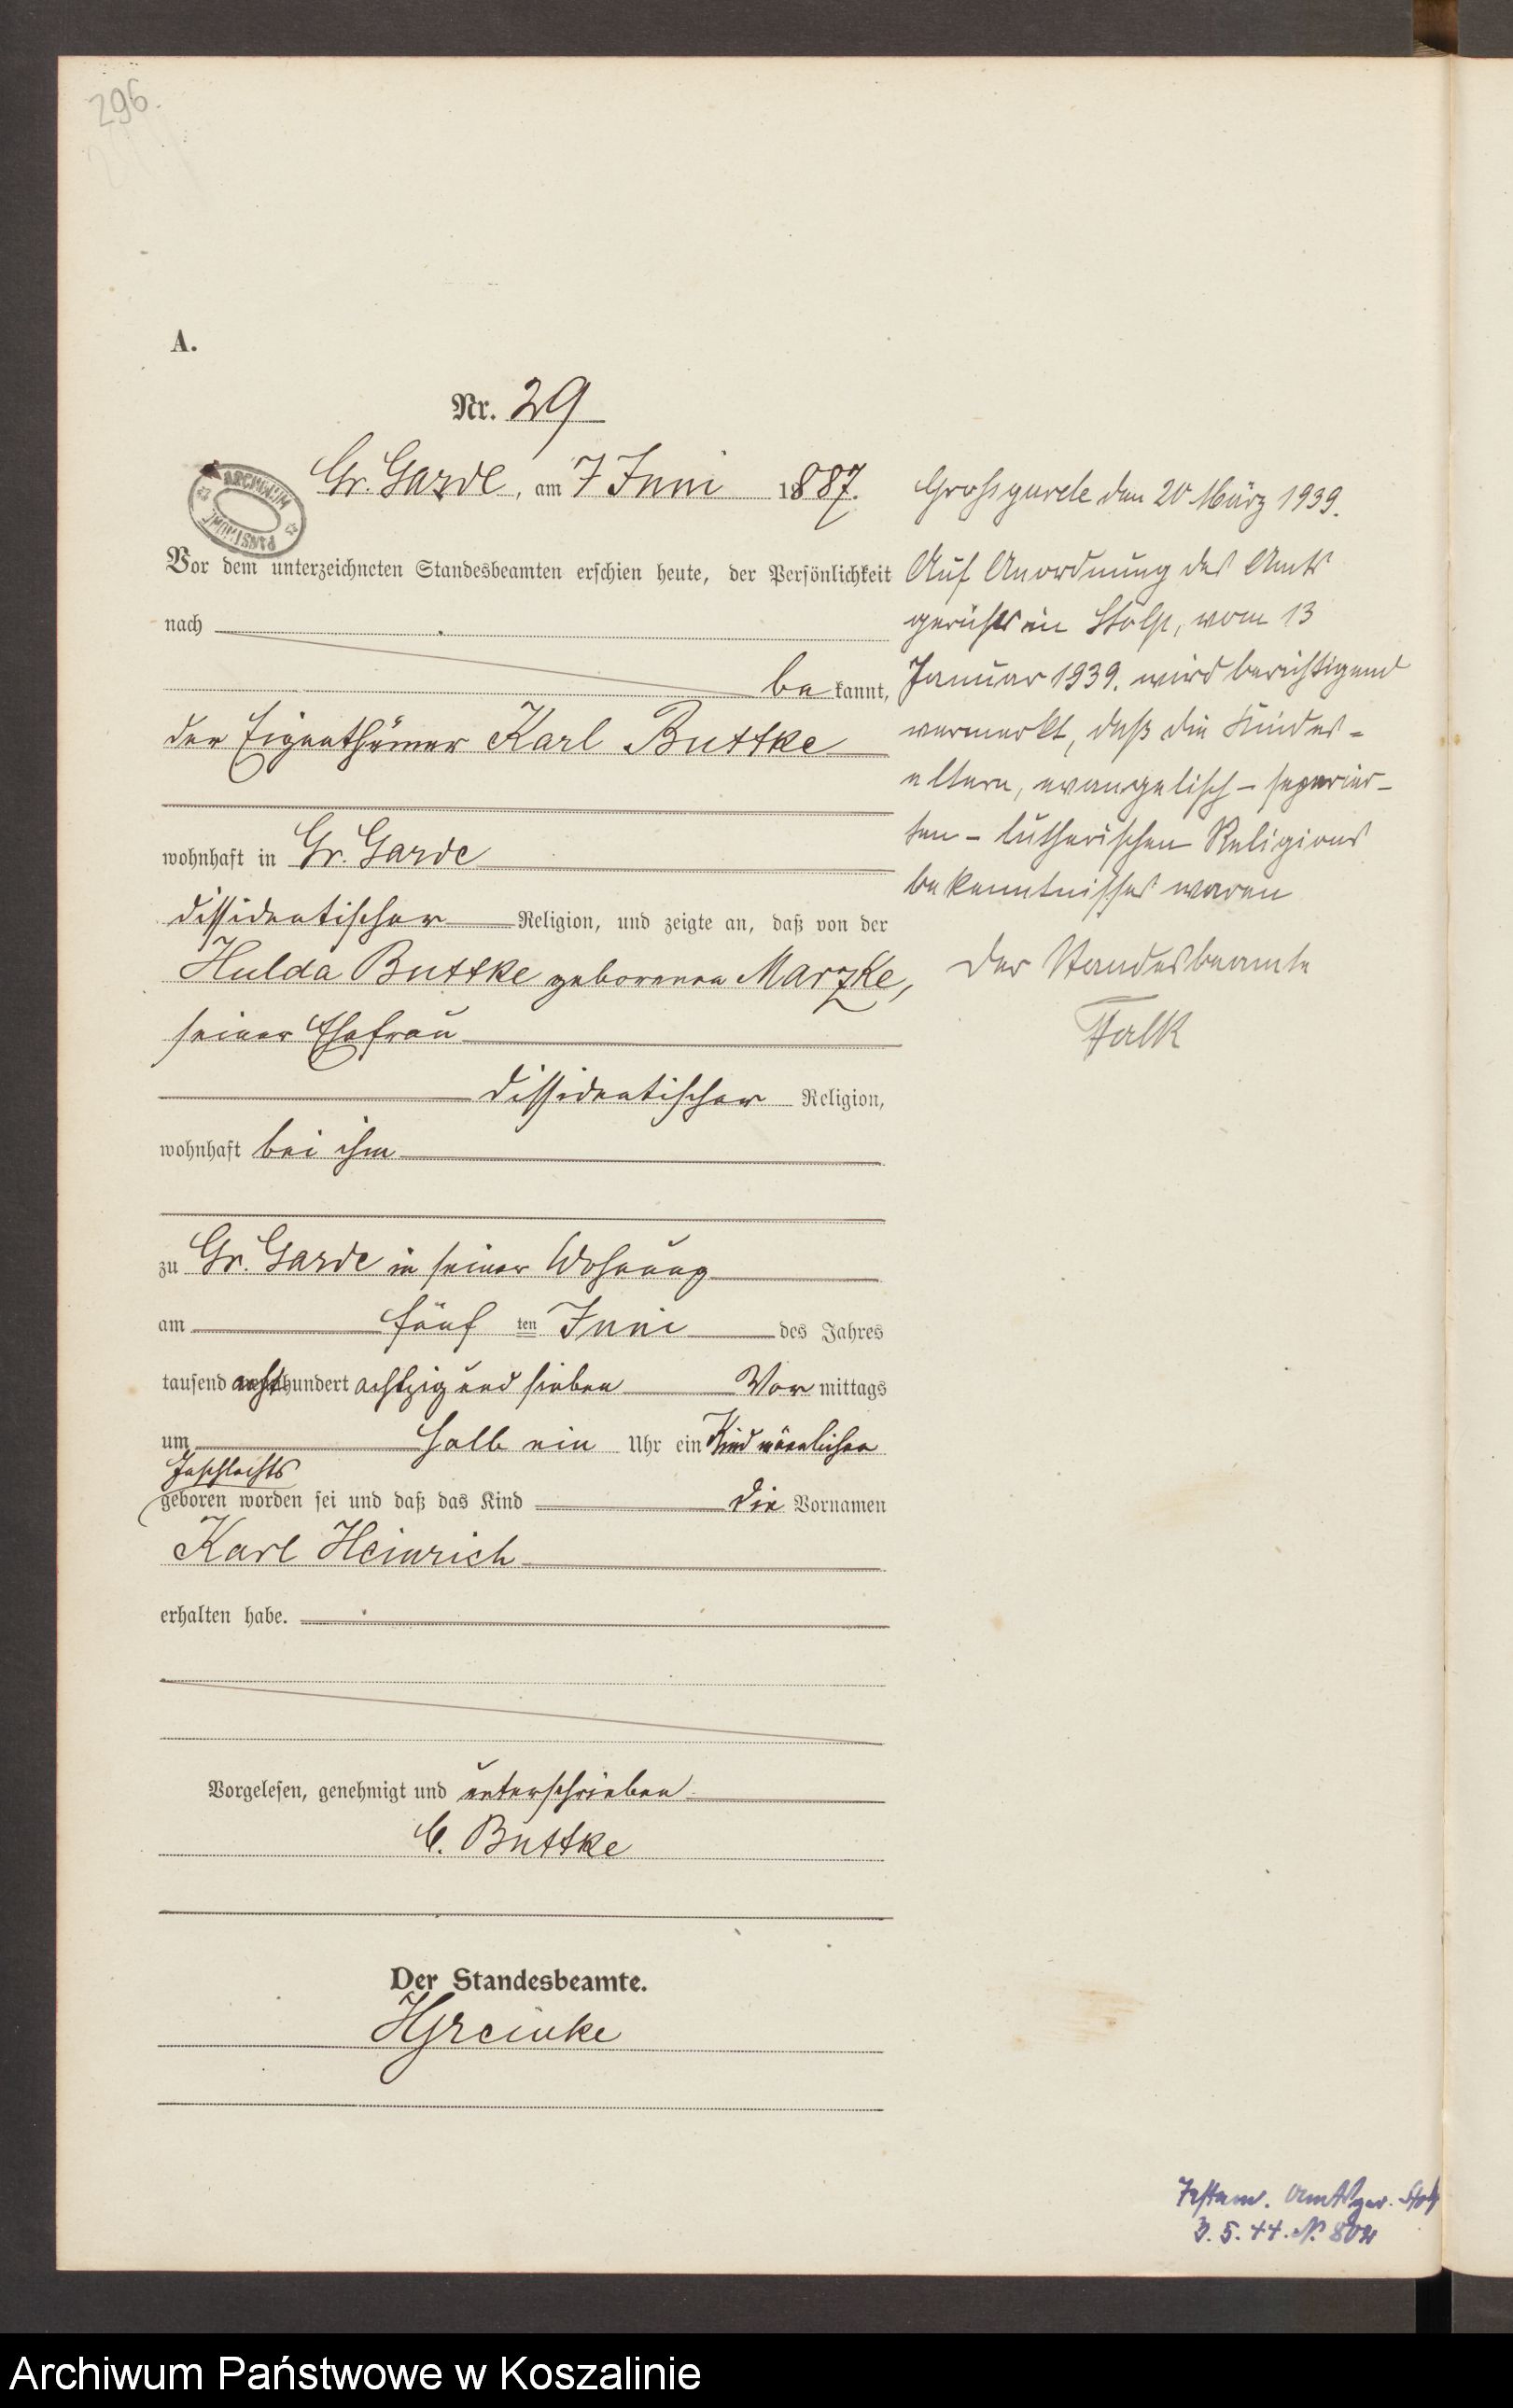 296.
A.
Nr. 29
ARCHIWUM PAŃSTWOWE
Gr. Garde, am 7 Juni 1887.
Vor dem unterzeichneten Standesbeamten erschien heute, der Persönlichkeit
nach
be kannt,
der Eigenthümer Karl Buttke
wohnhaft in Gr. Garde
dissidentischer Religion, und zeigte an, daß von der
Hulda Buttke geborenen Marzke,
seiner Ehefrau
dissidentischer Religion,
wohnhaft bei ihm
zu Gr. Garde in seiner Wohnung
am fünf ten Juni des Jahres
tausend acht hundert achtzig und sieben Vor mittags
um halb ein Uhr ein Kind männlichen
Geschlechts
geboren worden sei und daß das Kind die Vornamen
Karl Heinrich
erhalten habe.
Vorgelesen, genehmigt und unterschrieben
C. Buttke
Der Standesbeamte.
Großgarde den 20 März 1939.
Auf Anordnung des Amts
gerichts in Stolp, vom 13
Januar 1939. wird berichtigend
vermerkt, daß die Kindes-
eltern, evangelisch-separier-
ten-lutherischen Religions
bekenntnisses waren
Der Standesbeamte
Falk
Testam. Amtsger. Stolp
3.5.44. N.
Archiwum Państwowe w Koszalinie